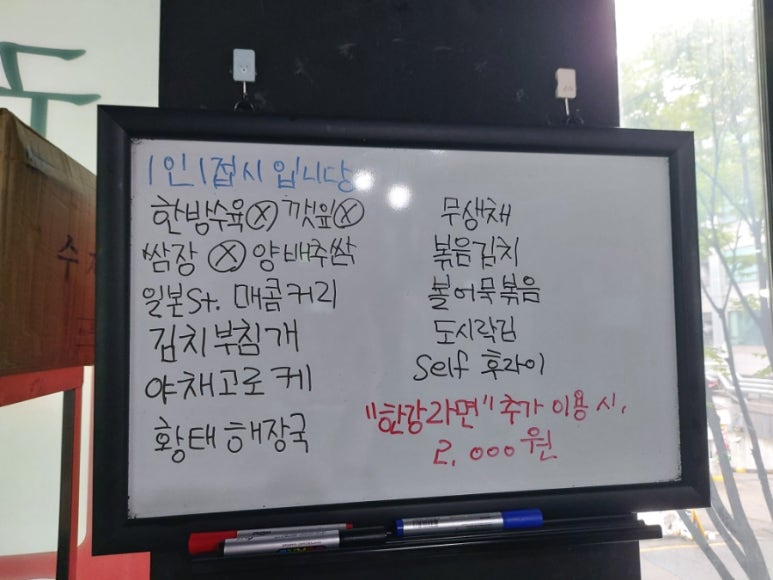 1인 1접시 입니당
한방수육ⓧ 깻잎ⓧ
쌈장 ⓧ 양배추쌈
일본St. 매콤커리
김치부침개
야채고로케
황태해장국
무생채
볶음김치
볼어묵볶음
도시락김
Self 후라이
"한강라면" 추가 이용 시,
2,000원
수